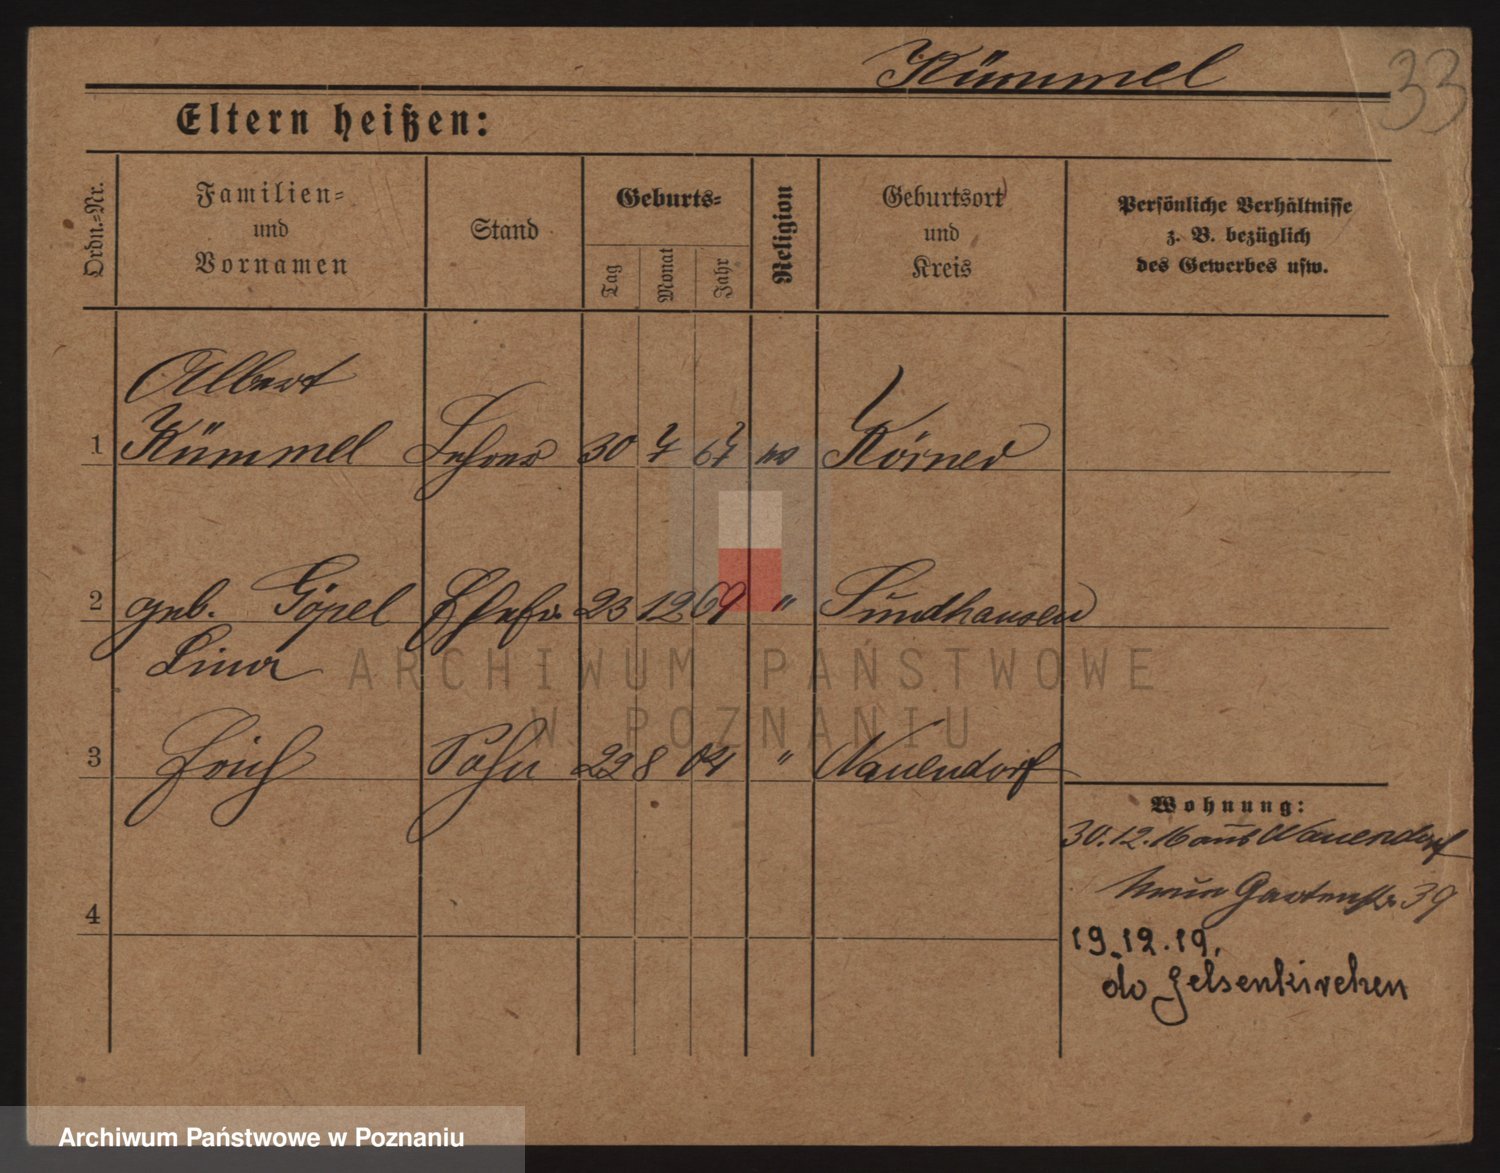 Kümmel
33
Eltern heißen:
Ordn.-Nr.
Familien-
und
Vornamen
Stand
Geburts-
Tag
Monat
Jahr
Religion
Geburtsort
und
Kreis
Persönliche Verhältnisse
z. B. bezüglich
des Gewerbes usw.
Albert
1 Kümmel Lehrer 30 ev Körner
2 geb. Göpel Ehefr. 23 12 69 " Sundhausen
Lina
3 Erich Sohn 22 8 04 " Nauendorf
Wohnung:
30.12.16 aus Nauendorf
Neue Gartenstr. 39
4
19.12.19.
do Gelsenkirchen
ARCHIWUM PAŃSTWOWE
W POZNANIU
Archiwum Państwowe w Poznaniu